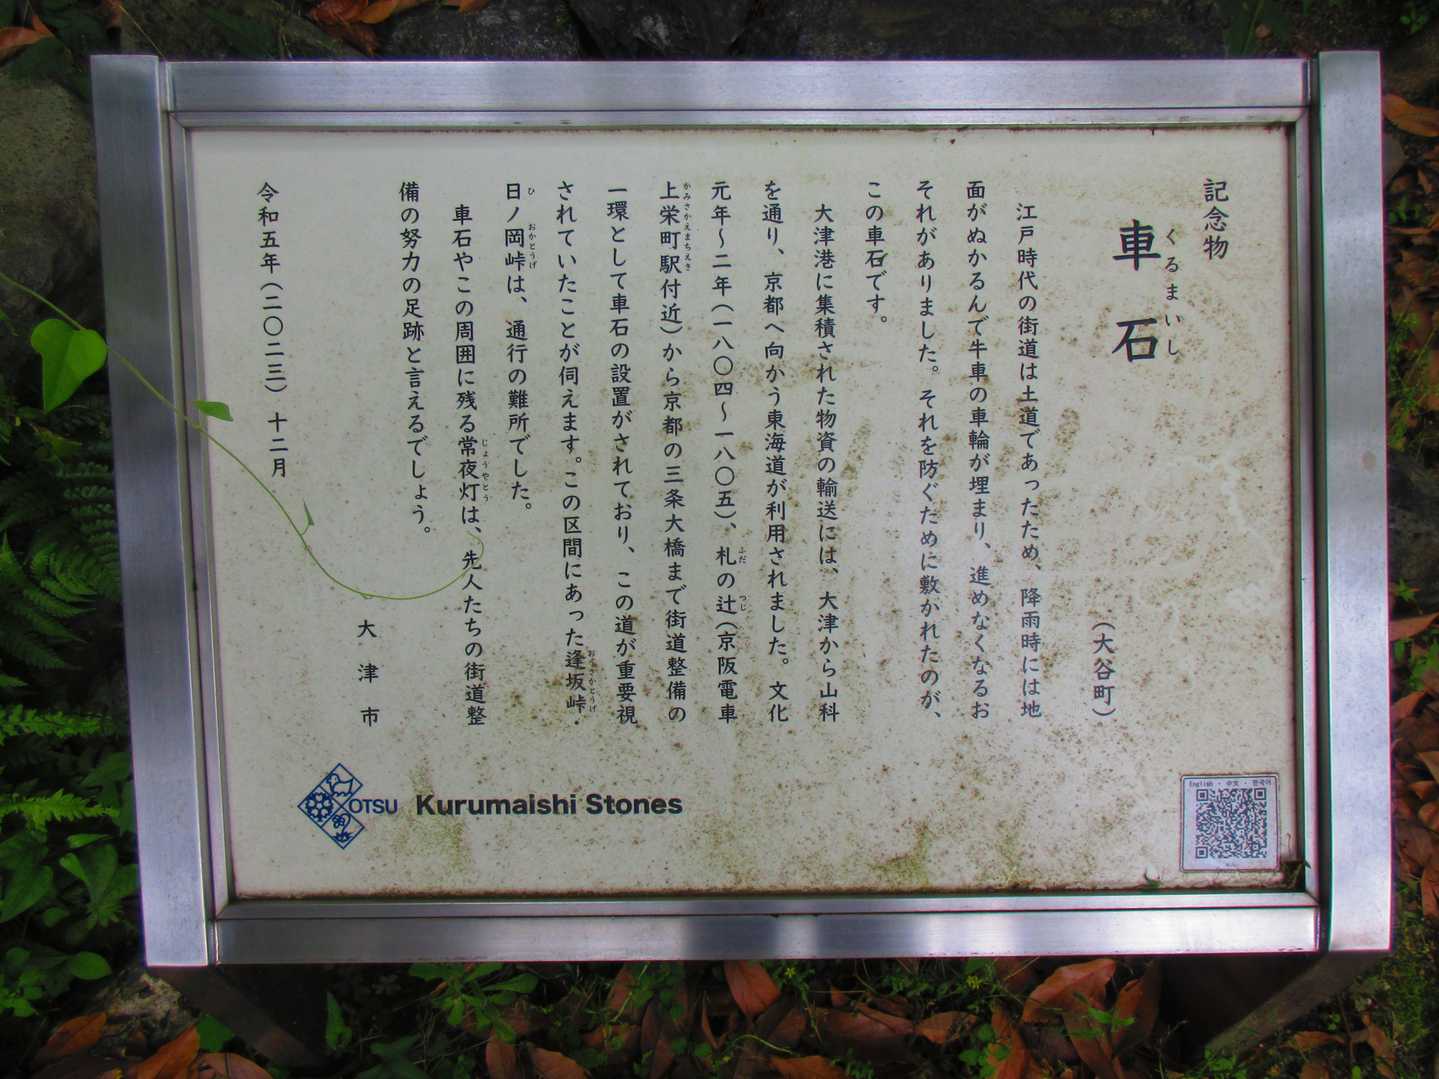 記念物
くるまいし
車石
(大谷町)
江戸時代の街道は土道であったため、降雨時には地
面がぬかるんで牛車の車輪が埋まり、進めなくなるお
それがありました。それを防ぐために敷かれたのが、
この車石です。
大津港に集積された物資の輸送には、大津から山科
を通り、京都へ向かう東海道が利用されました。文化
元年〜二年(一八〇四〜一八〇五)、札の辻(京阪電車
ふだ つじ
上栄町駅付近)から京都の三条大橋まで街道整備の
かみさかえまちえき
一環として車石の設置がされており、この道が重要視
されていたことが伺えます。この区間にあった逢坂峠・
おうさかとうげ
日ノ岡峠は、通行の難所でした。
ひ おかとうげ
車石やこの周囲に残る常夜灯は、先人たちの街道整
じょうやとう
備の努力の足跡と言えるでしょう。
大津市
令和五年(二〇二三)十二月
OTSU Kurumaishi Stones
English ・ 中文 ・ 한국어